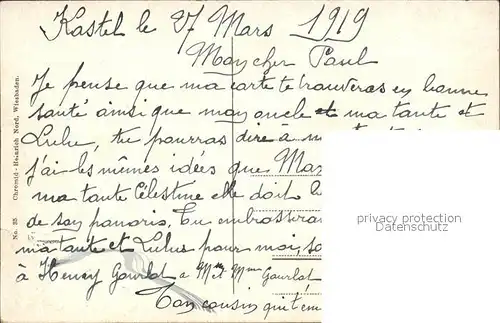 Kastel le 27 Mars 1919
Mon cher Paul
Je pense que ma carte te trouveras en bonne
santé ainsi que mon oncle et ma tante et
Lulu, tu pourras dire a
j'ai les mêmes idées que
ma tante Célestine elle doit
de son panoris. Tu embrassera
ma tante et Lulus pour moi, 
à Henry Gourlot a Mr et Mme Gourlot
Ton cousin qui t'em
No. 35 Chromo - Heinrich Nord, Wiesbaden.
privacy protection
Datenschutz